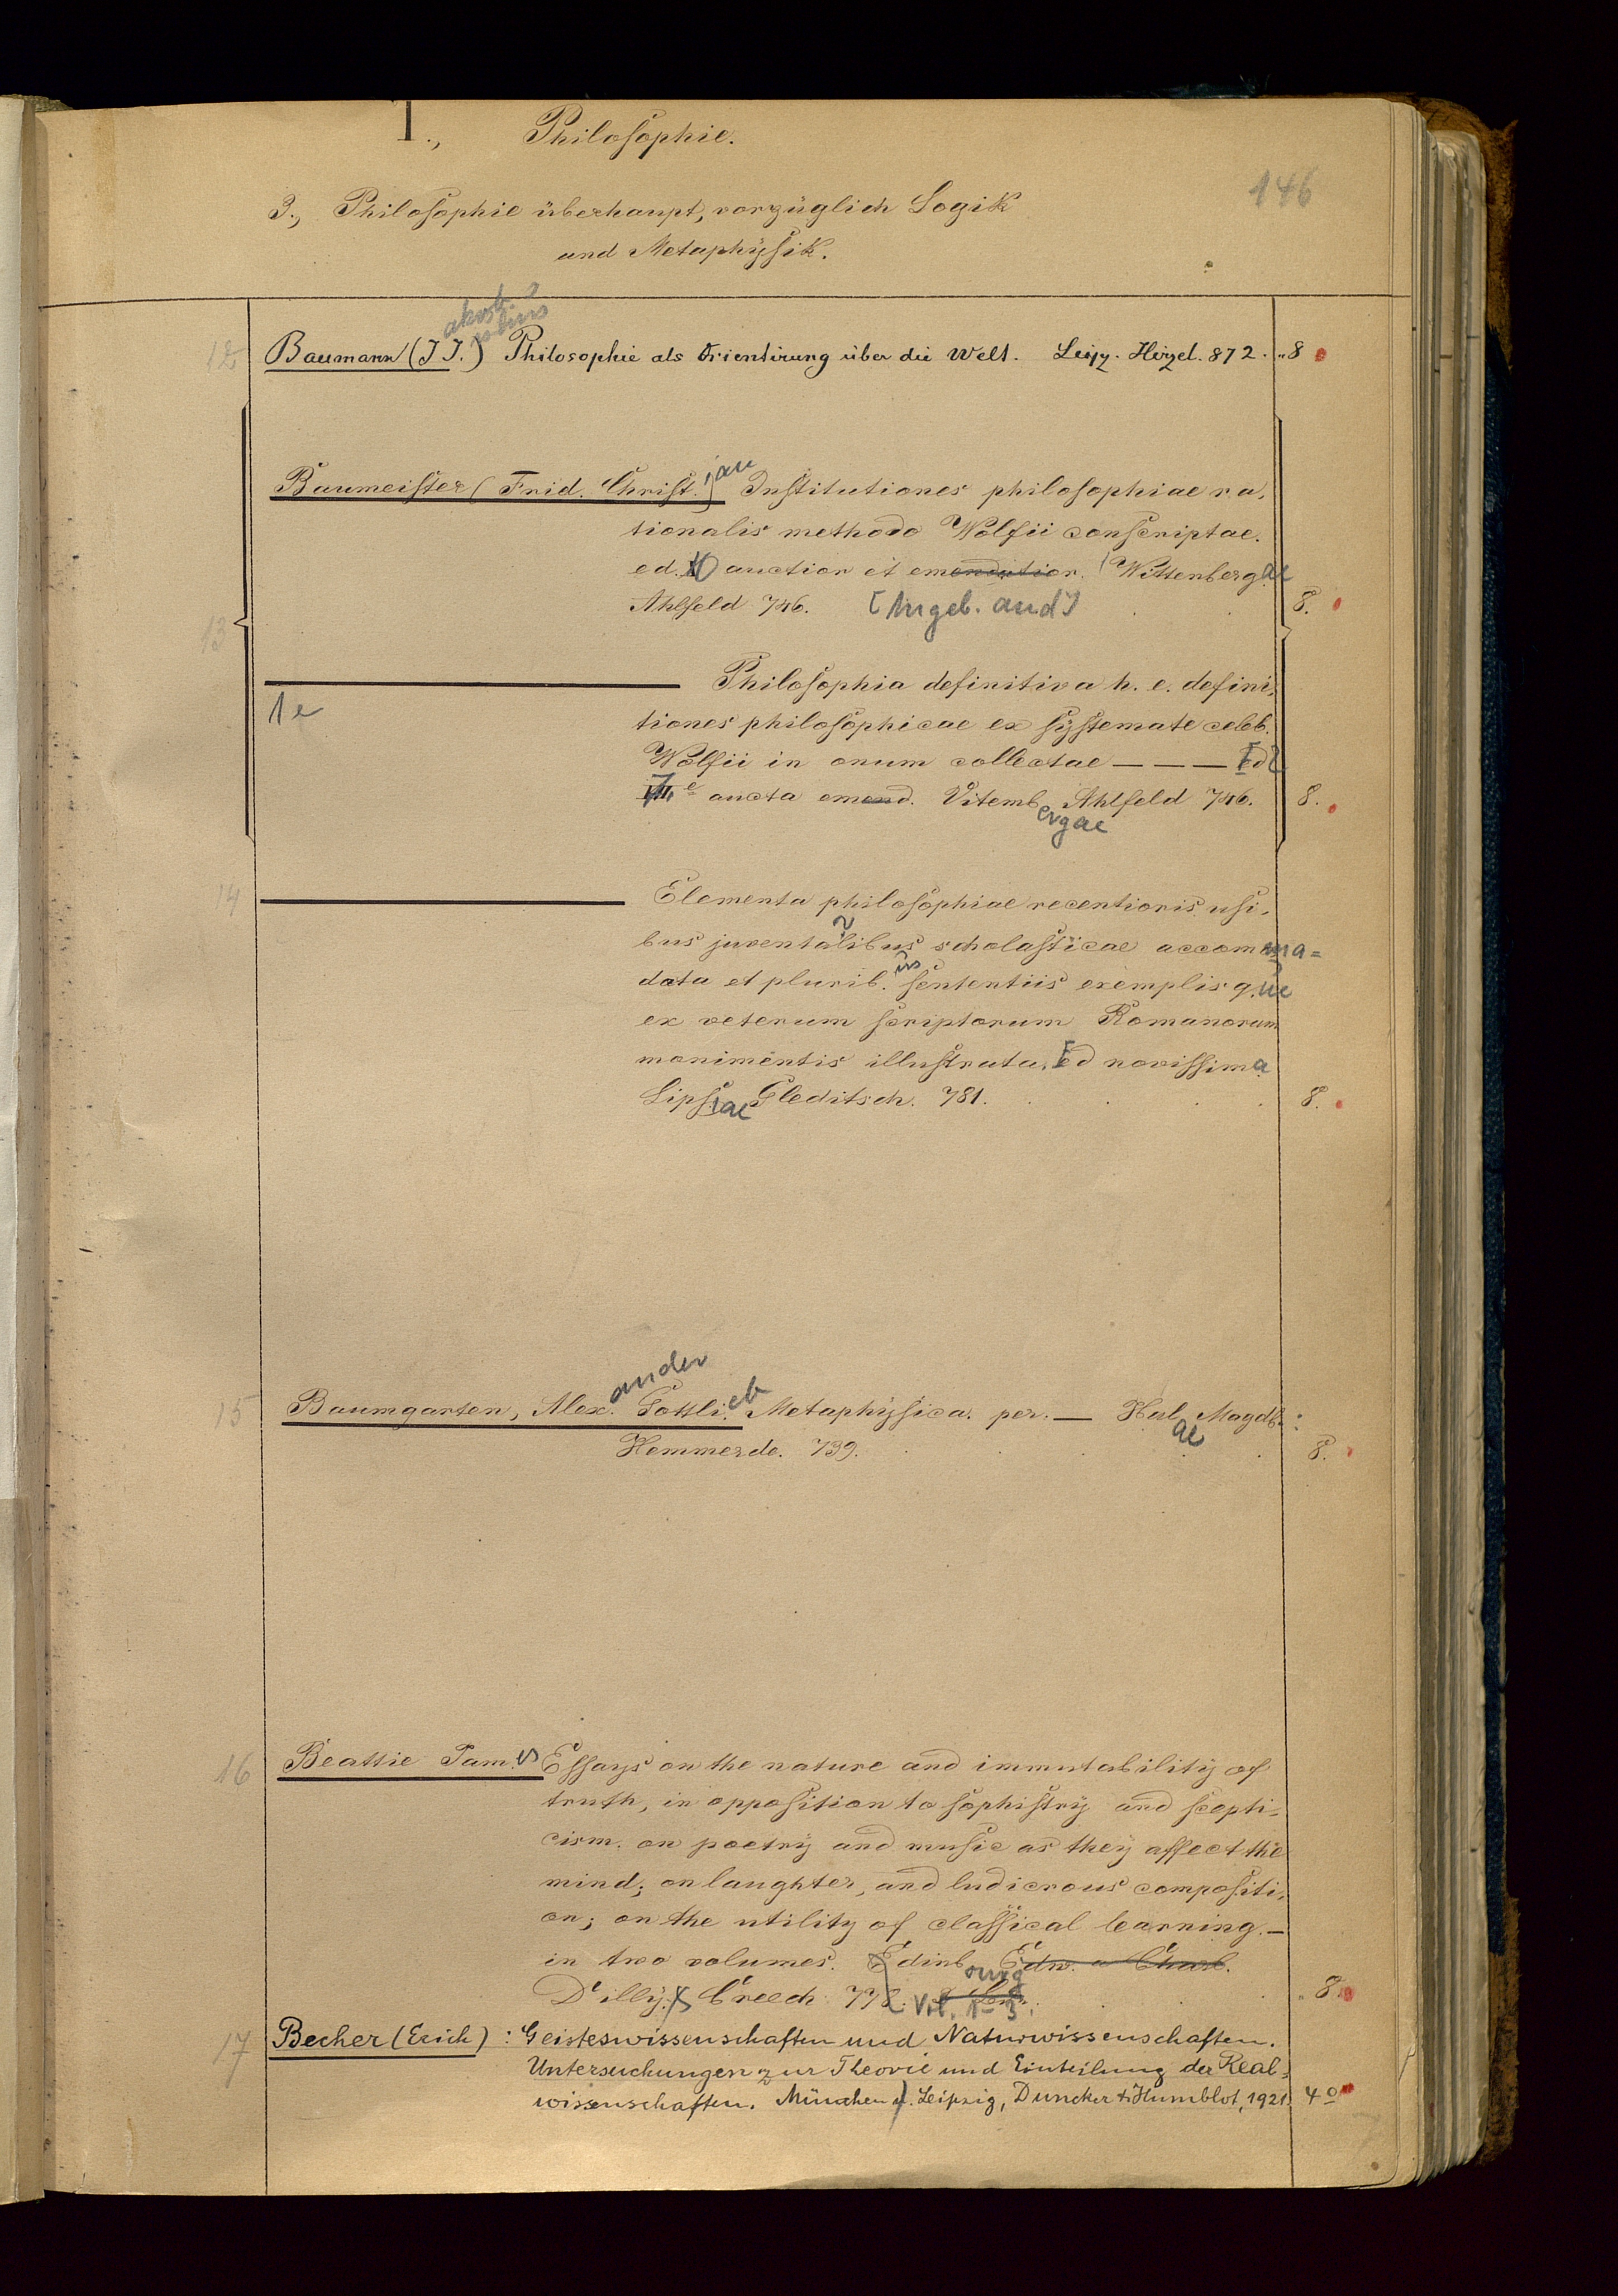 I., Philosophie.
146
3., Philosophie überhaupt, vorzüglich Logik
und Metaphysik.
12 Baumann (J J.) Philosophie als Orientirung über die Welt. Leipz. Hirzel. 872. 8
Baumeister (Frid. Christ.jan) Institutiones philosophiae ra,
tionalis methodo Wolfii conscriptae.
ed. auction et emendatior. Wittenbergae
Ahlfeld 746. [Angeb. and] 8.
13
Philosophia definitiva h. e. defini,
1e tiones philosophicae ex systemate celeb.
Wolfii in unum collectae — — — Ed
VII e aucta emend. Vitembergae Ahlfeld 746. 8.
14 Elementa philosophiae recentioris usi,
bus juventalibus scholasticae accomma=
data et pluribus sententiis exemplisque
ex veterum scriptorum Romanorum
monimentis illustrata. Ed novissima
Lipsiae Gleditsch. 781. 8.
15 Baumgarten, Alexander Gottlieb Metaphysica. per. — Halae Magdb.:
Hemmerde. 739. 8.
16 Beattie James Essays on the nature and immutability of
truth, in opposition to sophistry and scepti=
cism. on poetry and music as they affect the
mind; on laughter, and ludicrous compositi,
on; on the utility of classical learning. —
in two volumes. Edinbourg Edw. u Charl.
Dilly. & Creech 778. Vol. 1-3. 8.
17 Becher (Erich): Geisteswissenschaften und Naturwissenschaften.
Untersuchungen zur Theorie und Einteilung der Real=
wissenschaften. München u. Leipzig, Duncker & Humblot, 1921. 4º